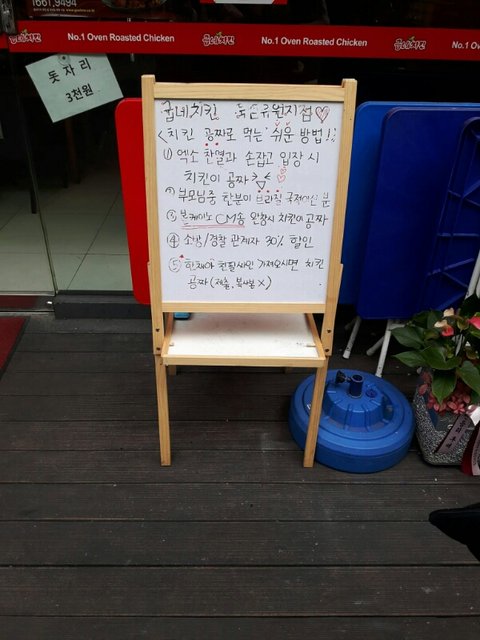 1661.9494
굽네치킨 No.1 Oven Roasted Chicken 굽네치킨 No.1 Oven Roasted Chicken 굽네치킨 No.1 Ov
돗자리
3천원
굽네치킨 뚝섬유원지점♡
<치킨 공짜로 먹는 쉬운 방법!>
① 엑소 찬열과 손잡고 입장 시
치킨이 공짜
② 부모님중 한분이 브라질 국적이신 분
③ 볼케이노 CM송 완창시 치킨이 공짜
④ 소방/경찰 관계자 30% 할인
⑤ 한채아 친필싸인 가져오시면 치킨
공짜 (제출, 복사본 X)